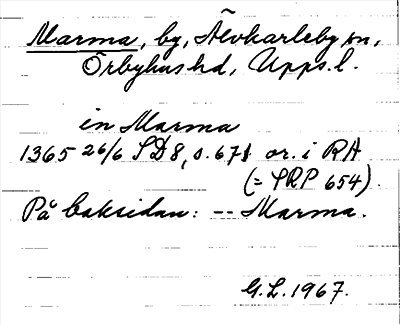 Marma, by, Älvkarleby sn,
Örbyhus hd, Upps. l.
in Marma
1365 26/6 SD 8, s. 671 or. i RA
(= SRP 654).
På baksidan: -- Marma.
G.L. 1967.